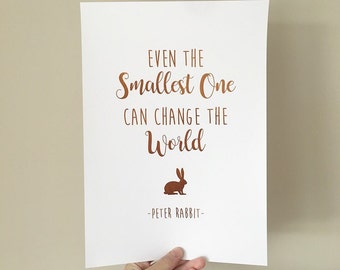 EVEN THE
Smallest One
CAN CHANGE THE
World
-PETER RABBIT-